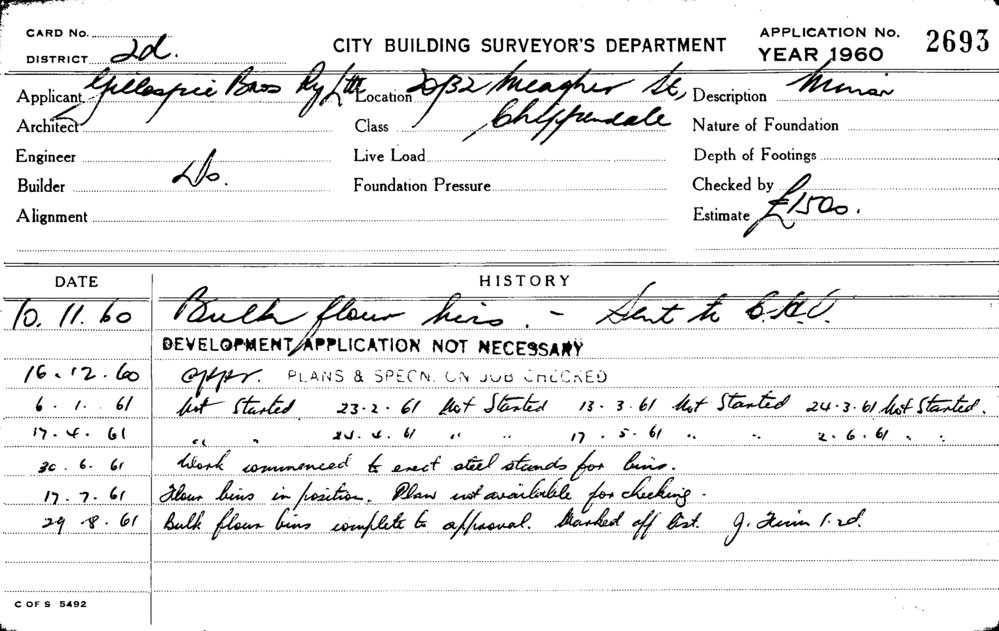 CARD No.
DISTRICT 2d.
CITY BUILDING SURVEYOR'S DEPARTMENT
APPLICATION No. 2693
YEAR 1960
Applicant Gillespie Bros Pty Ltd Location 20/32 Meagher St, Chippendale Description Minor
Architect Class Nature of Foundation
Engineer Live Load Depth of Footings
Builder Do. Foundation Pressure Checked by
Alignment Estimate £1500.
DATE HISTORY
10.11.60 Bulk flour bins. - Sent to
DEVELOPMENT APPLICATION NOT NECESSARY
16.12.60 appr. PLANS & SPECN. ON JOB CHECKED
6.1.61 Not Started 23-2-61 Not Started 13-3-61 Not Started 24-3-61 Not Started.
17.4.61 " " 24.4.61 " " 17.5.61 " " 2.6.61 " "
30.6.61 Work commenced to erect steel stands for bins.
17.7.61 Flour bins in position. Plans not available for checking.
29.8.61 Bulk flour bins complete to approval. Marked off list. J.
C OF S 5492